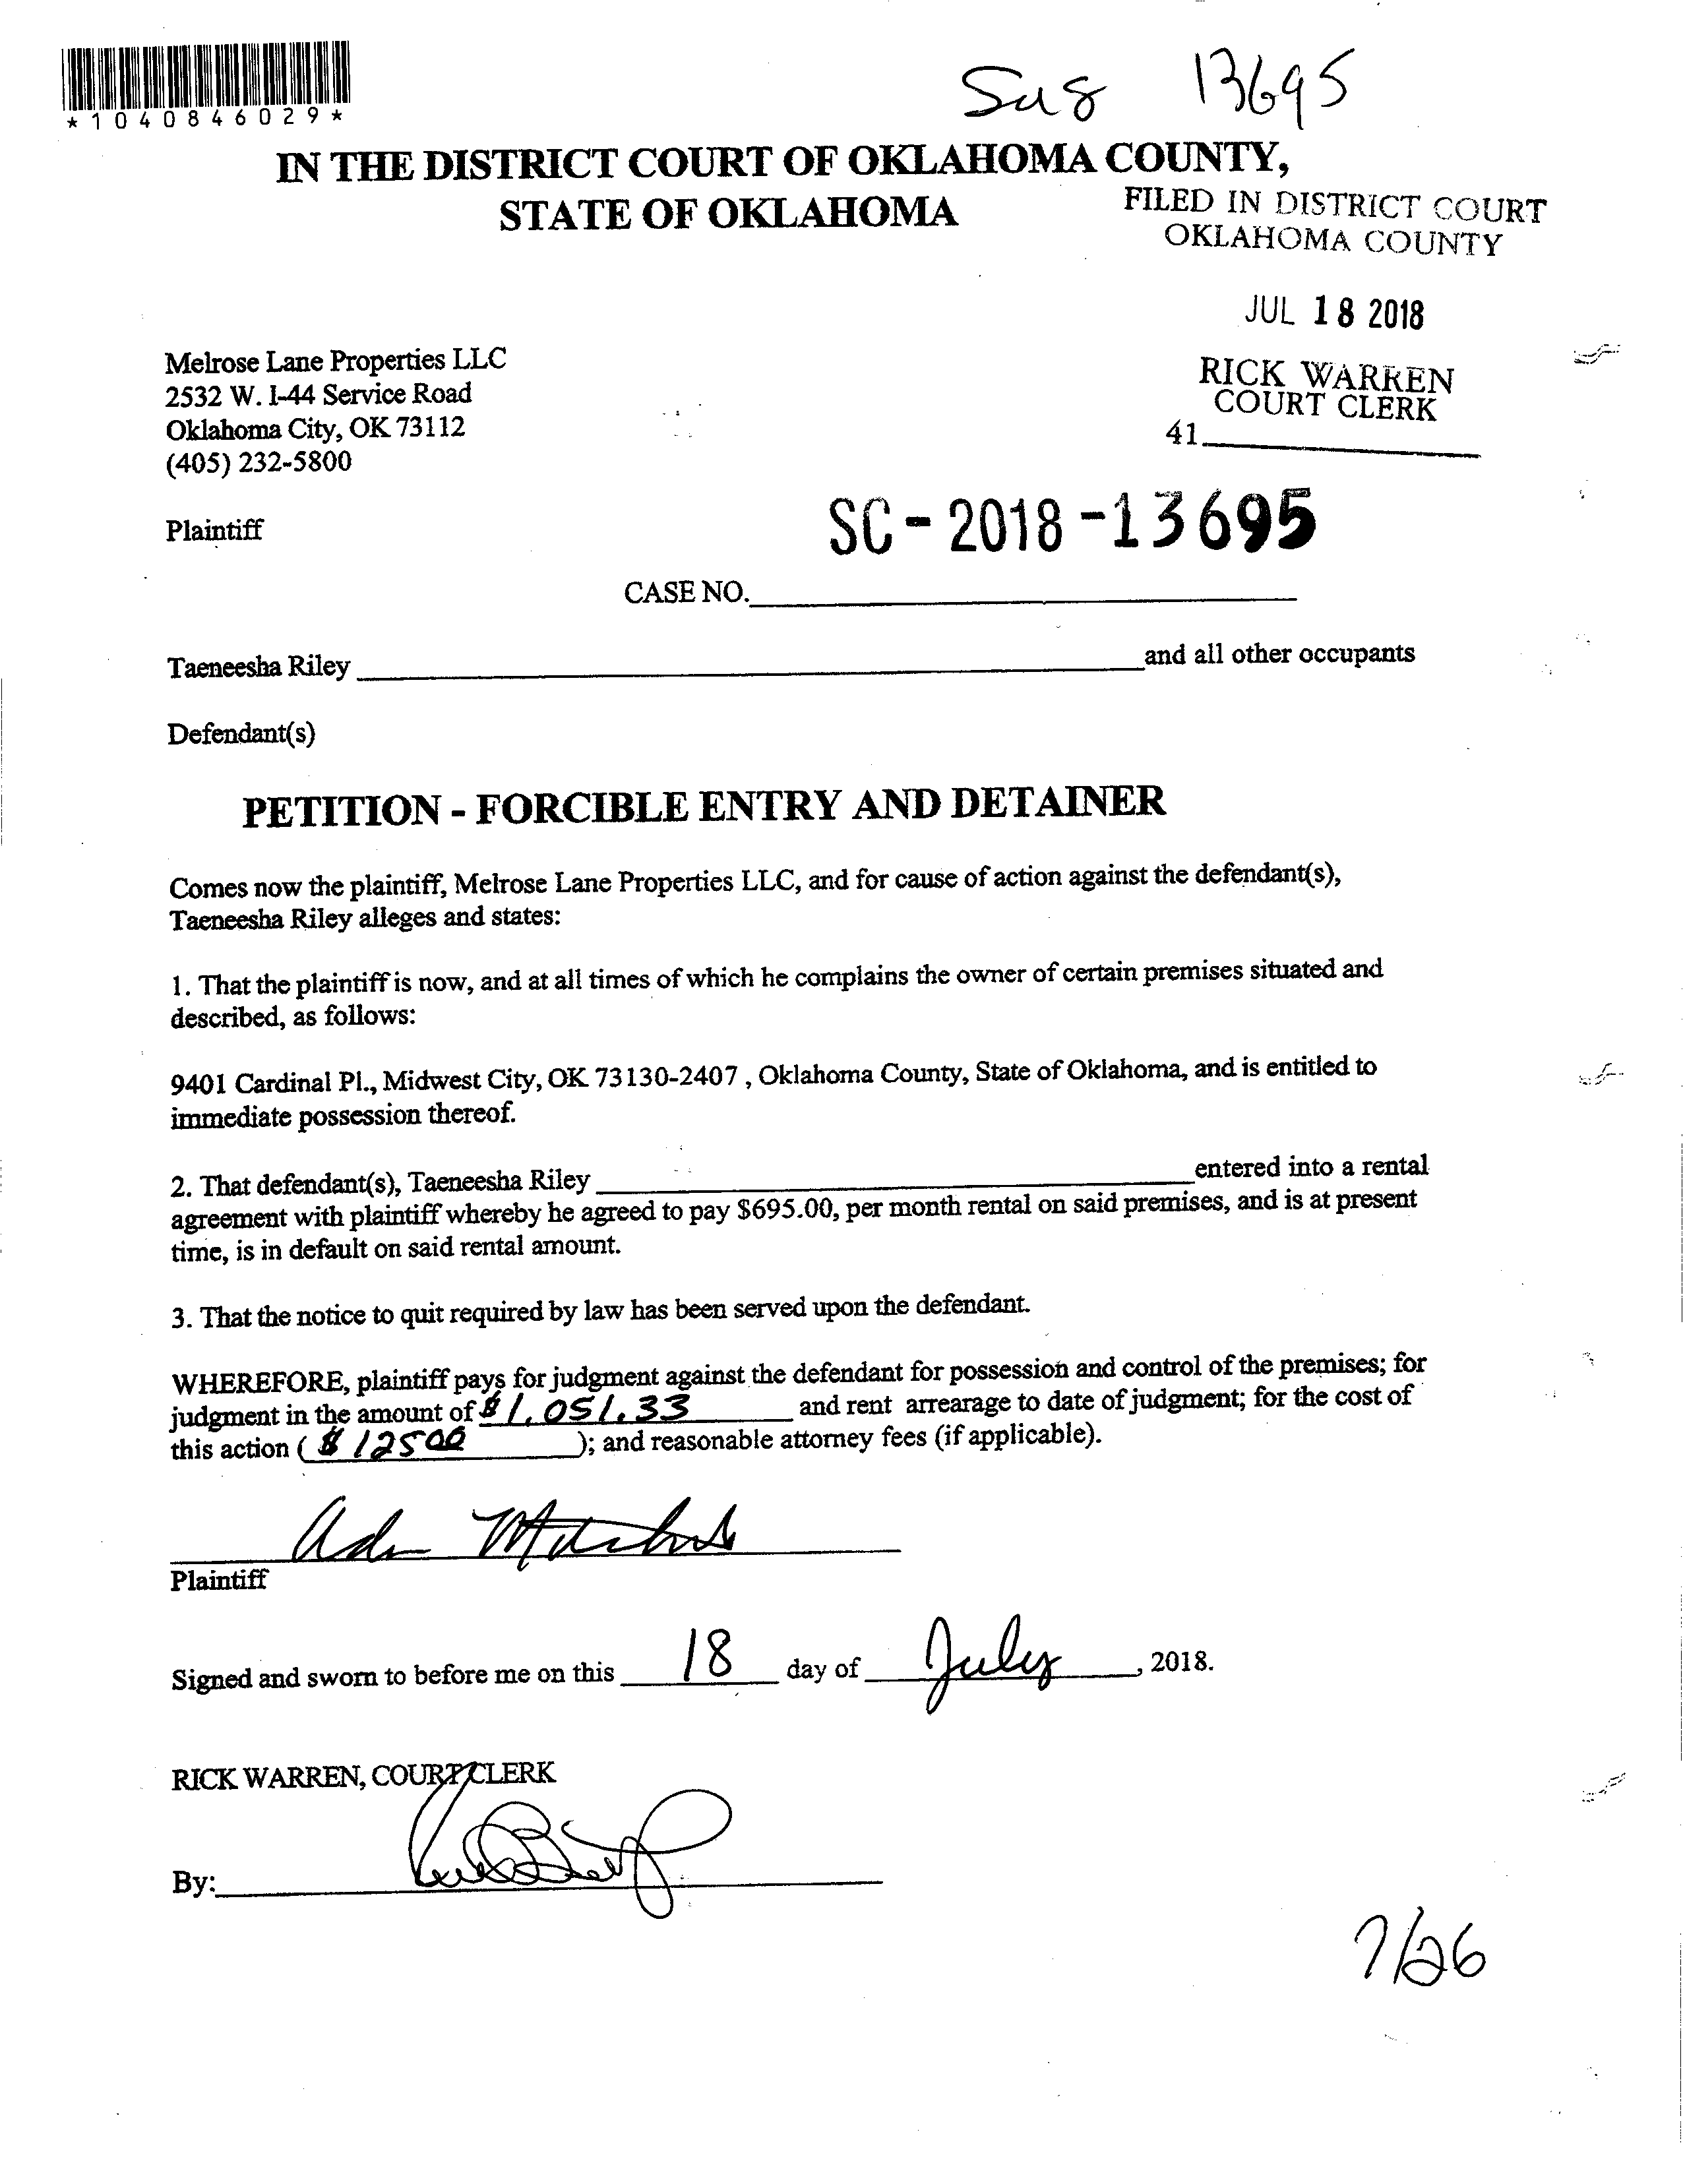 *1040846029*
13695
IN THE DISTRICT COURT OF OKLAHOMA COUNTY,
STATE OF OKLAHOMA
FILED IN DISTRICT COURT
OKLAHOMA COUNTY
JUL 18 2018
RICK WARREN
COURT CLERK
41
Melrose Lane Properties LLC
2532 W. I-44 Service Road
Oklahoma City, OK 73112
(405) 232-5800
Plaintiff
SC-2018-13695
CASE NO.
Taeneesha Riley and all other occupants
Defendant(s)
PETITION - FORCIBLE ENTRY AND DETAINER
Comes now the plaintiff, Melrose Lane Properties LLC, and for cause of action against the defendant(s),
Taeneesha Riley alleges and states:
1. That the plaintiff is now, and at all times of which he complains the owner of certain premises situated and
described, as follows:
9401 Cardinal Pl., Midwest City, OK 73130-2407 , Oklahoma County, State of Oklahoma, and is entitled to
immediate possession thereof.
2. That defendant(s), Taeneesha Riley entered into a rental
agreement with plaintiff whereby he agreed to pay $695.00, per month rental on said premises, and is at present
time, is in default on said rental amount.
3. That the notice to quit required by law has been served upon the defendant.
WHEREFORE, plaintiff pays for judgment against the defendant for possession and control of the premises; for
judgment in the amount of $1,051.33 and rent arrearage to date of judgment; for the cost of
this action ( $12500 ); and reasonable attorney fees (if applicable).
Plaintiff
Signed and sworn to before me on this 18 day of July, 2018.
RICK WARREN, COURT CLERK
By:
7/26